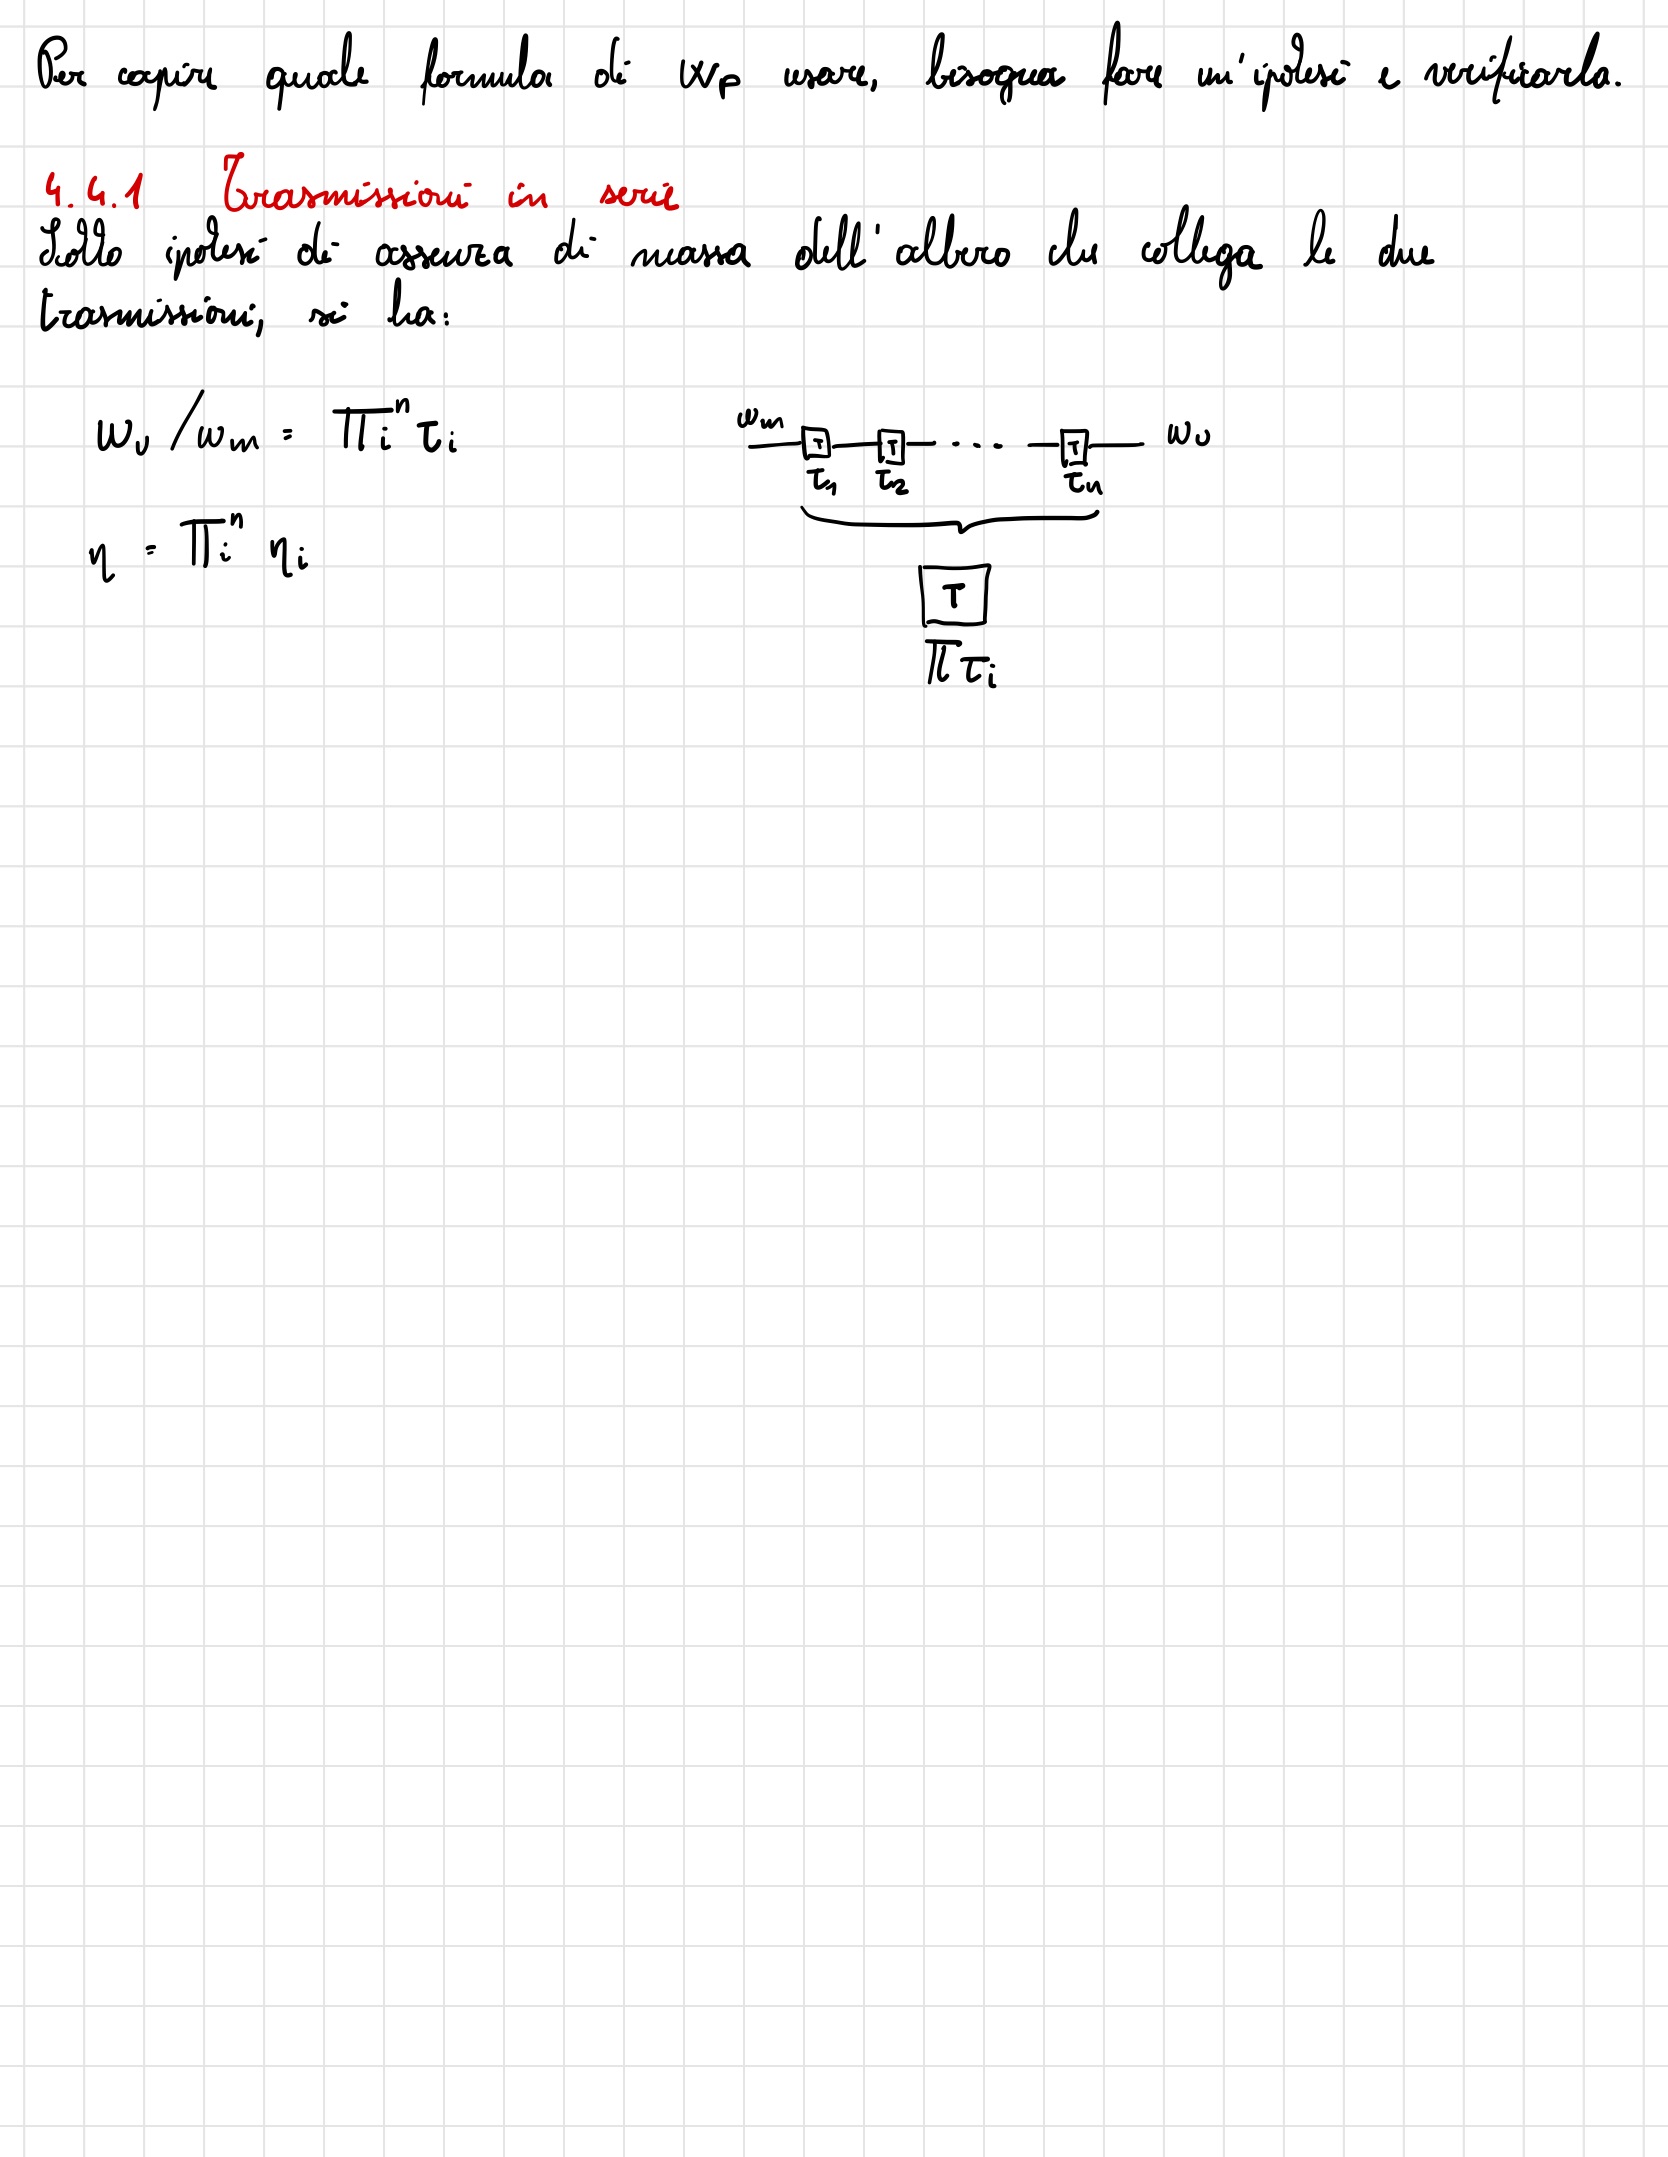 Per capire quale formula di Wp usare, bisogna fare un'ipotesi e verificarla.
4.4.1 Trasmissioni in serie
Sotto ipotesi di assenza di massa dell'albero che collega le due
trasmissioni, si ha:
ωᵤ/ωₘ = ∏ᵢⁿ τᵢ
η = ∏ᵢⁿ ηᵢ
ωₘ T T ... T ωᵤ
τ₁ τ₂ τₙ
T
∏ τᵢ